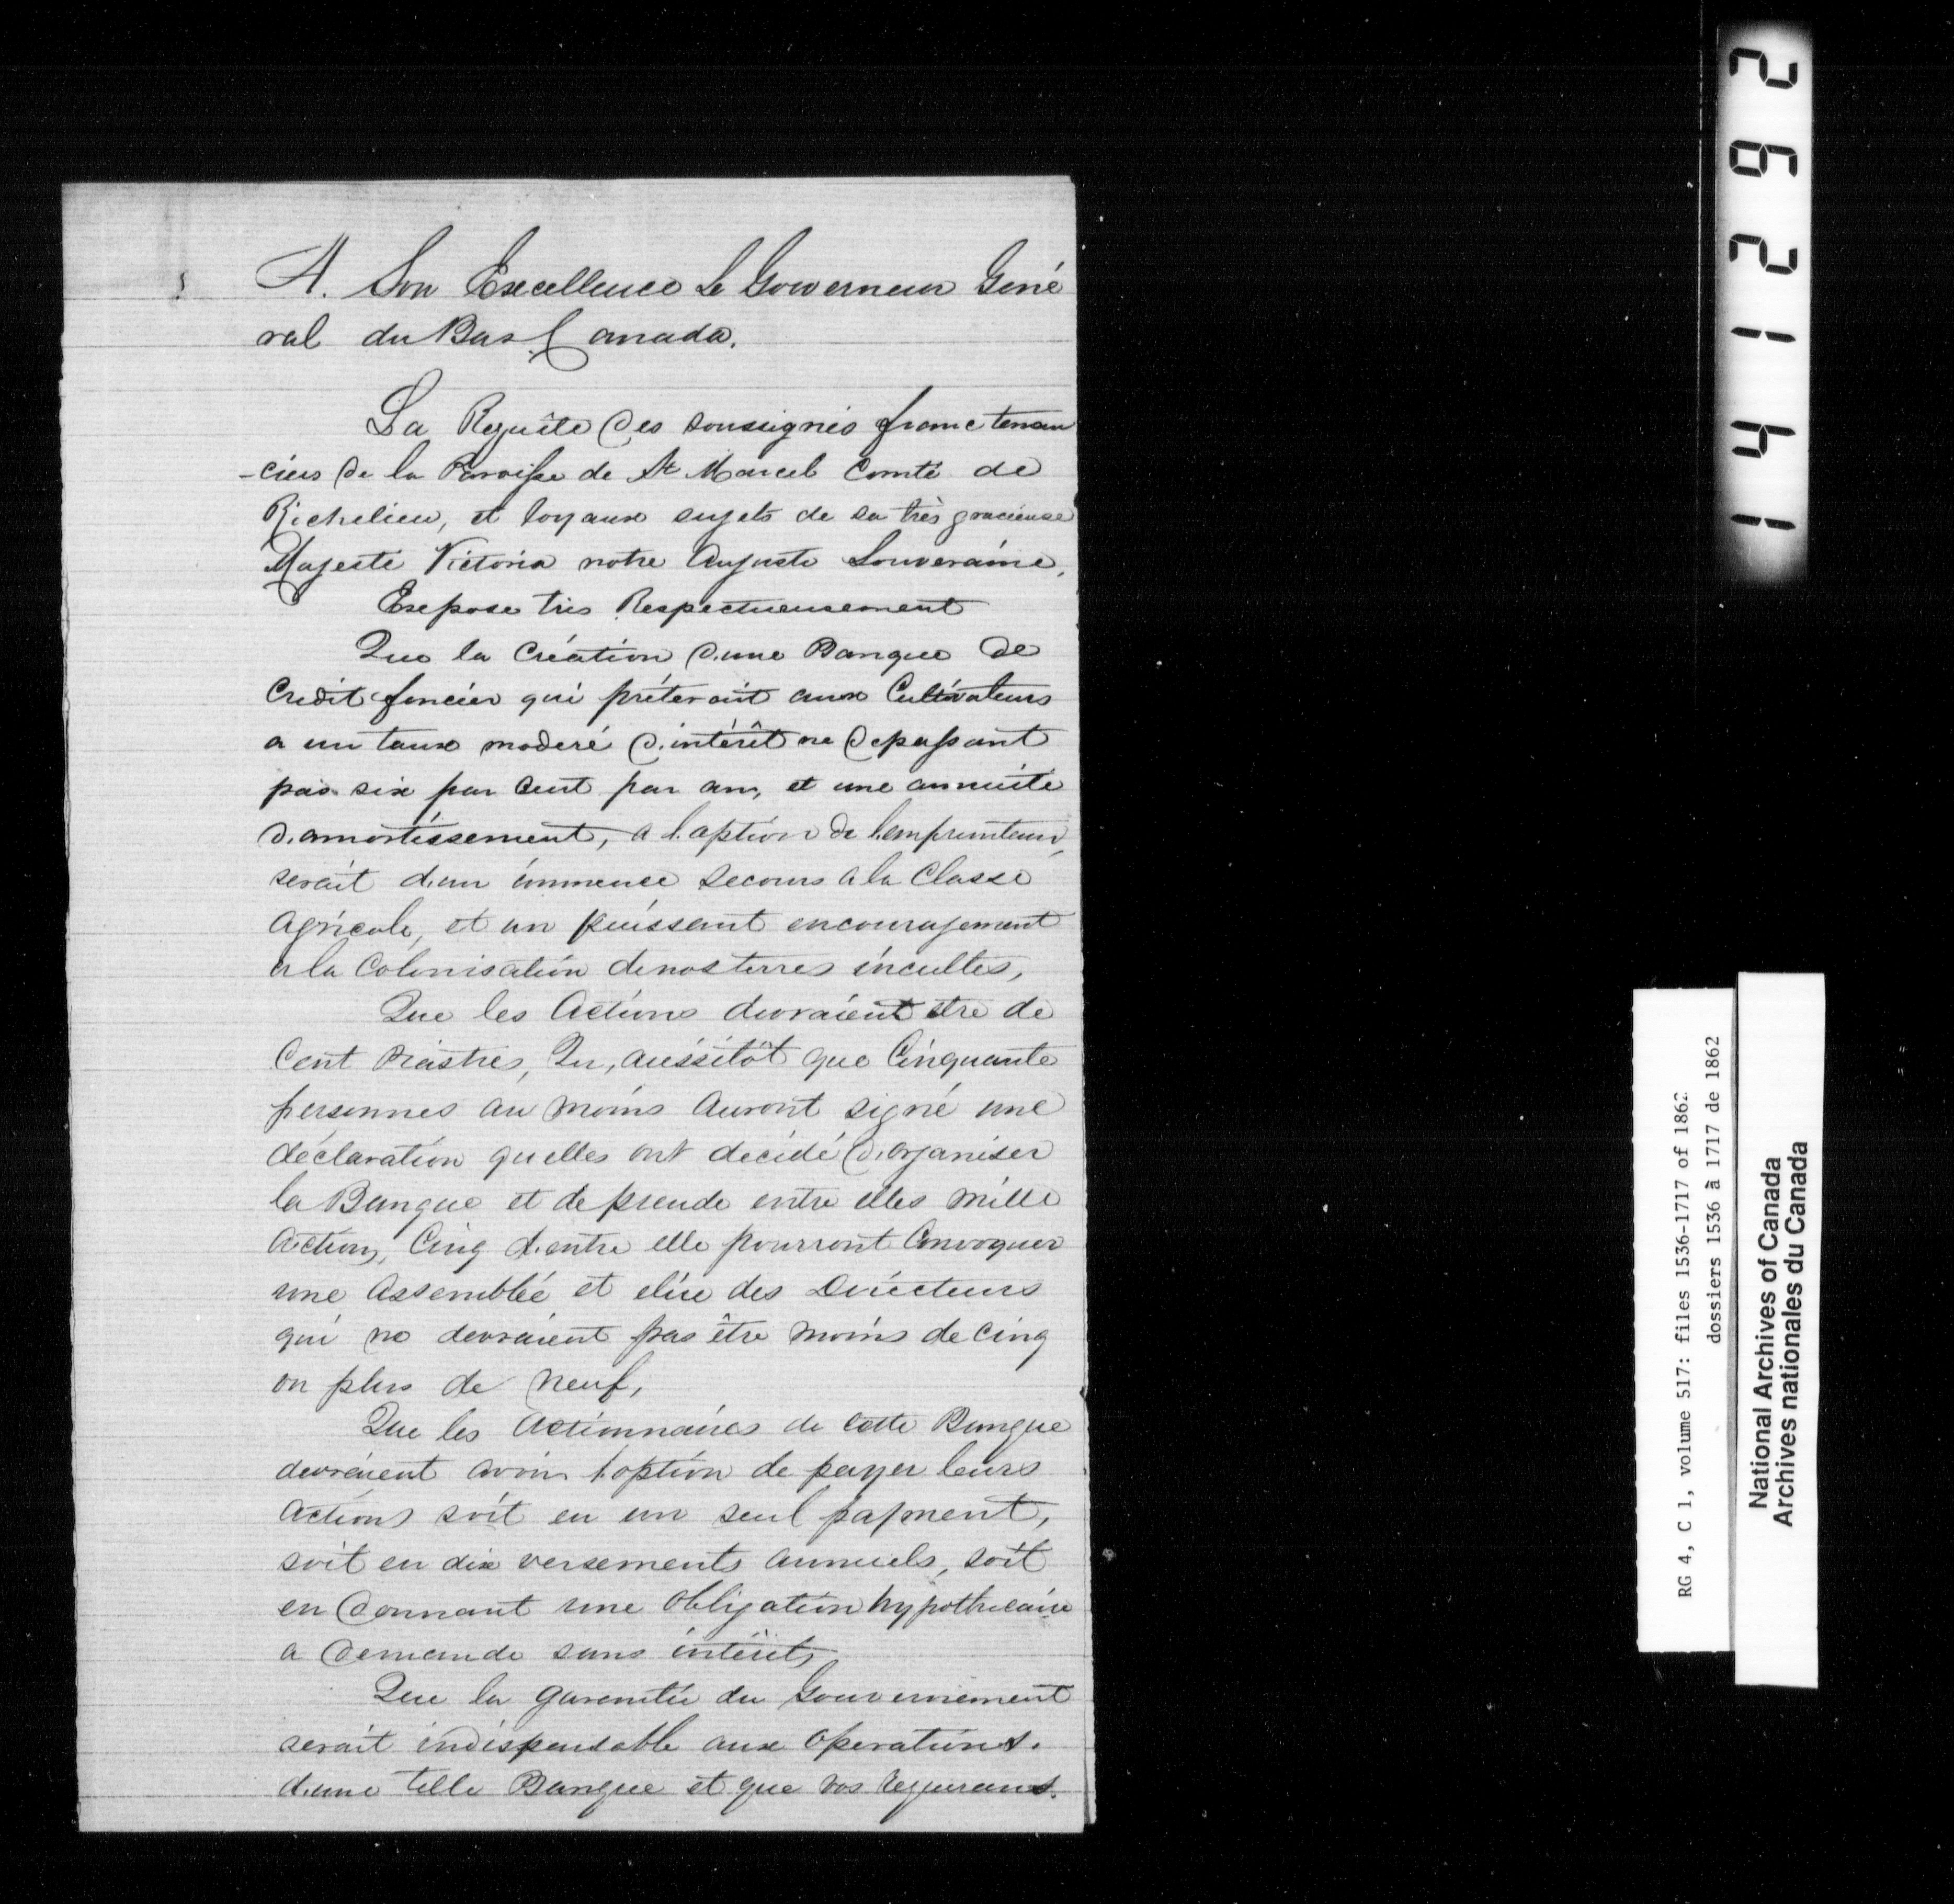 A. Son Excellence Le Gouverneur Géné
ral du Bas Canada.
La Requête des soussignés franc tenan
-ciers de la Paroisse de St Marcel Comté de
Richelieu, et loyaux sujets de sa très gracieuse
Majesté Victoria notre Auguste Souveraine,
Expose très Respectueusement
Que la Création d'une Banque de
Crédit foncier qui prêterait aux Cultivateurs
a un taux moderé d'intérêt ne depassant
pas six par cent par an, et une annuité
d'amortissement, a l'option de l'emprunteur,
serait d'un immence secours a la Classe
Agricole, et un puissant encouragement
a la Colonisation de nos terres incultes,
Que les Actions devraient etre de
Cent Piastres, Qu, aussitôt que Cinquante
personnes au moins Auront signé une
déclaration quelles ont décidé d'organiser
la Banque et de prende entre elles mille
Action, Cinq d'entre elle pourront Convoquer
une Assemblée et elire des Directeurs
qui ne devraient pas être moins de Cinq
ou plus de neuf,
Que les Actionnaires de cette Banque
devraient avoir l'option de payer leurs
Actions soit en un seul payment,
soit en dix versements Annuels, soit
en donnant une Obligation hypothecaire
a demande sans intérêt,
Que la garantie du Gouvernement
serait indispensable aux Operations.
d'une telle Banque et que vos requerants.
141292
RG 4, C 1, volume 517: files 1536-1717 of 1862
dossiers 1536 à 1717 de 1862
National Archives of Canada
Archives nationales du Canada